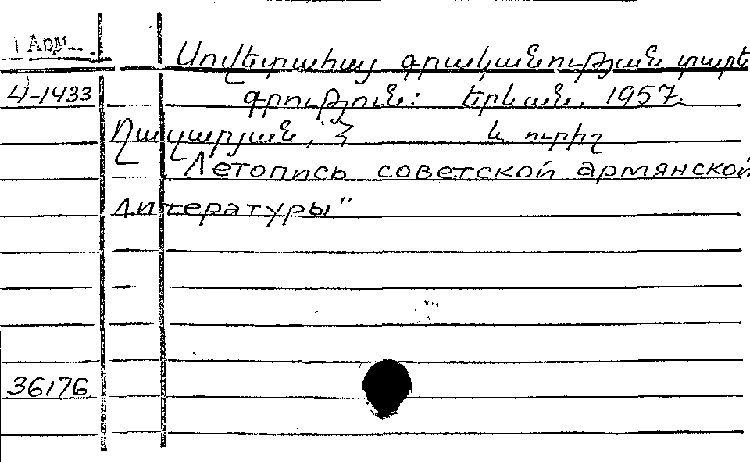 1 Арм.
Սովետահայ գրականության տարե
Ч-1433 գրություն: Երևան, 1957.
Ղազարյան, Հ և ուրիշ
Летопись советской армянской
литературы"
36176